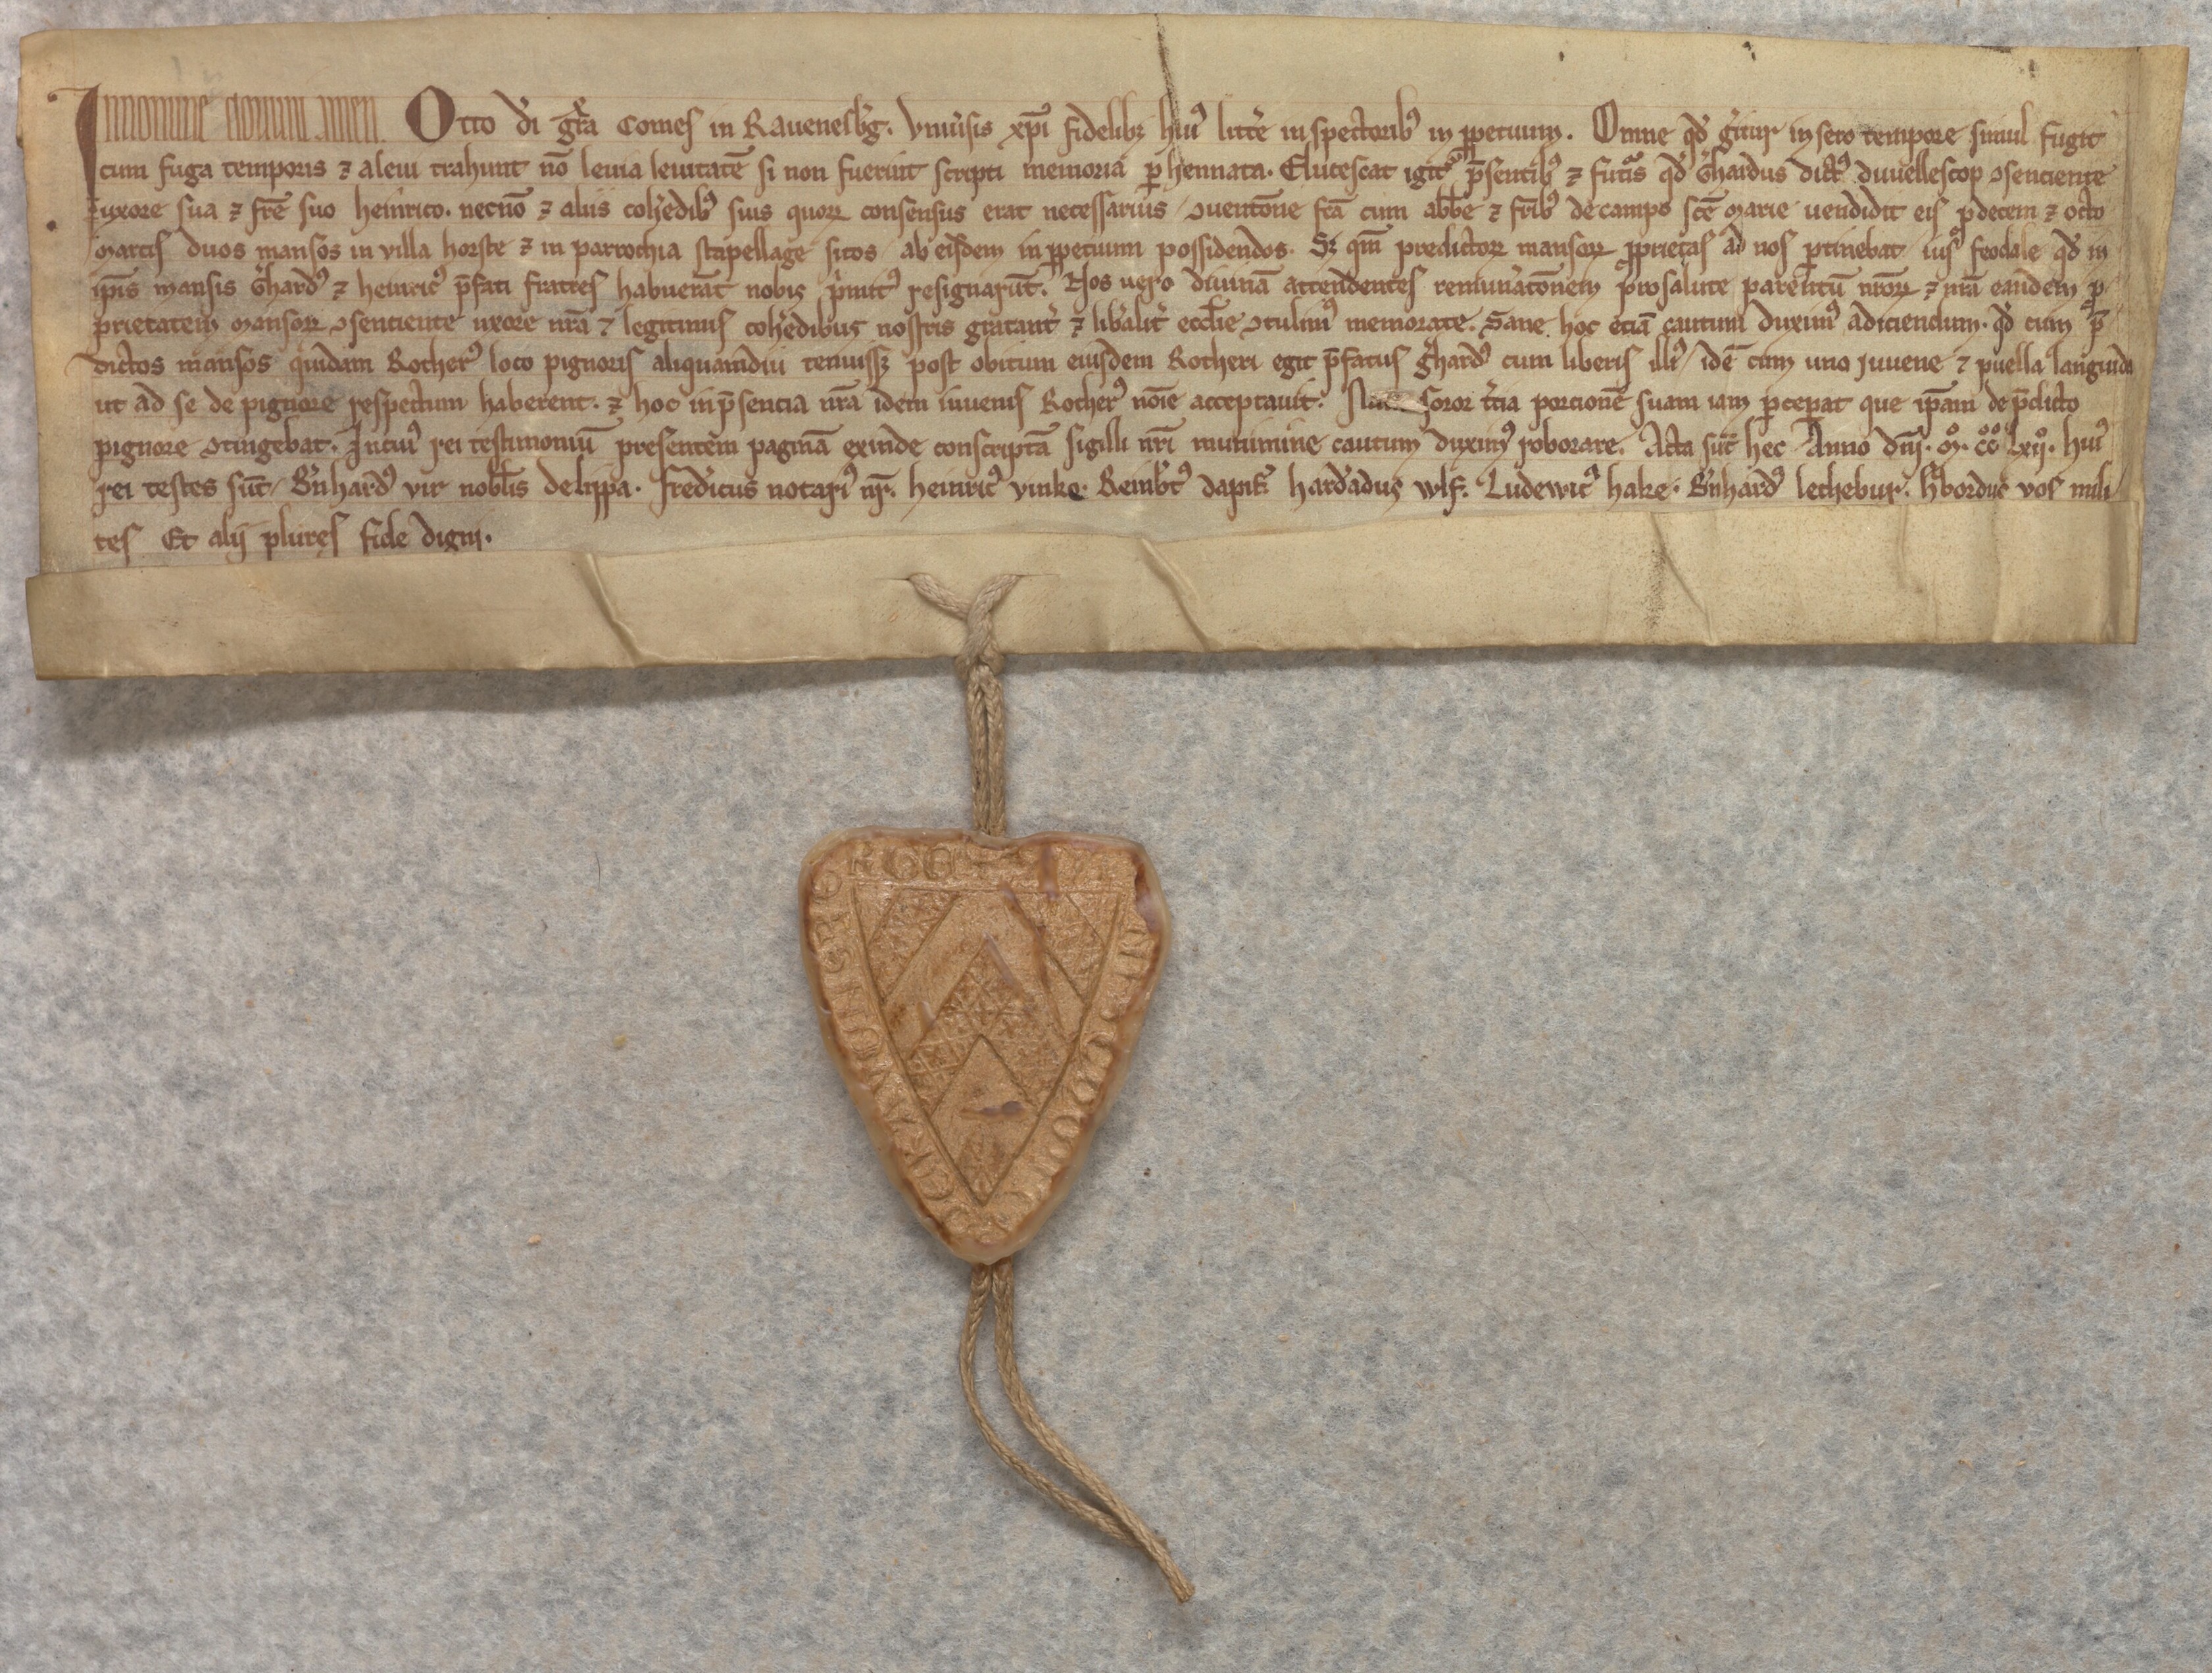 In nomine domini amen. Otto d̓i gr̄a Comes in Rauenesb̓g. Vniu̓sis xp̄i fidelibꝫ hui᷒ litt̓e inspectorib᷒ in ꝑpetuum. Omne qd̓ g̓itur in sero tempore simul fugit
cum fuga temporis ⁊ aleui trahunt nō leuia leuitatē si non fuerint scripti memoria ꝑhennata. Elucescat igit᷑ p̄sentib᷒ ⁊ futur̄is qd̓ Gh̓ardus dict᷒ duuellescop ↄsenciente
uxore sua ⁊ fr̄e suo heinrico. necnō ⁊ aliis coh̓edib᷒ suis quoꝝ consensus erat necessarius ↄuentōne fc̄a cum abb̄e ⁊ fr̄ib᷒ de campo sc̄e Marie uendidit eis ꝓ decem ⁊ octo
Marcis duos mansos in villa horste ⁊ in parrochia stapellage sitos ab eisdem in ꝑpetuum possidendos. Sꝫ qm̄ predictoꝝ mansoꝝ ꝓprietas ad nos ꝑtinebat ius feodale qd̓ in
ip̄is mansis Gh̓ard᷒ ⁊ heinric᷒ p̄fati fratres habuerāt nobis p̓mit᷒ resignarūt. Nos uero diuinā attendentes remunatōnem pro salute parentū nr̄oꝝ ⁊ nr̄a eandem ꝓ
prietatem Mansoꝝ ↄsenciente uxore nr̄a ⁊ legitimis coh̓edibus nostris gratant̓ ⁊ lib̓alit̓ eccl̄ie ↄtulim᷒ memorate. Sane hoc eciā cautum duxim᷒ adiciendum. qd̓ cum p̄
dictos mansos quidam Rother᷒ loco pignoris aliquamdiu tenuissꝫ post obitum eiusdem Rotheri egit p̄fatus gh̓ard᷒ cum liberis illi᷒ idē cum uno iuuene ⁊ puella languida
ut ad se de pignore respectum haberent. ⁊ hoc in p̄sencia nr̄a idem iuuenis Rother᷒ nōie acceptauit. soror t̓cia porcionē suam iam ꝑcepat que ip̄am de p̄dicto
pignore ↄtingebat. In cui᷒ rei testimoniū presentem paginā exinde conscriptā sigilli nr̄i munimine cautum duxim᷒ roborare. Acta sūt hec Anno dn̄j. M̊. c̊c̊. Lxij̊. hui᷒
rei testes sūt. B̓nhard᷒ vir nobl̄is de lippa. Fred̓icus notari᷒ nr̄. heinric᷒ vinke. Reinb̓t᷒ dapif̓. hard̓adus wlf. Ludewic᷒ hake. B̓nhard᷒ lethebur. h̓bordus vos mili
tes Et alij plures fide digni.